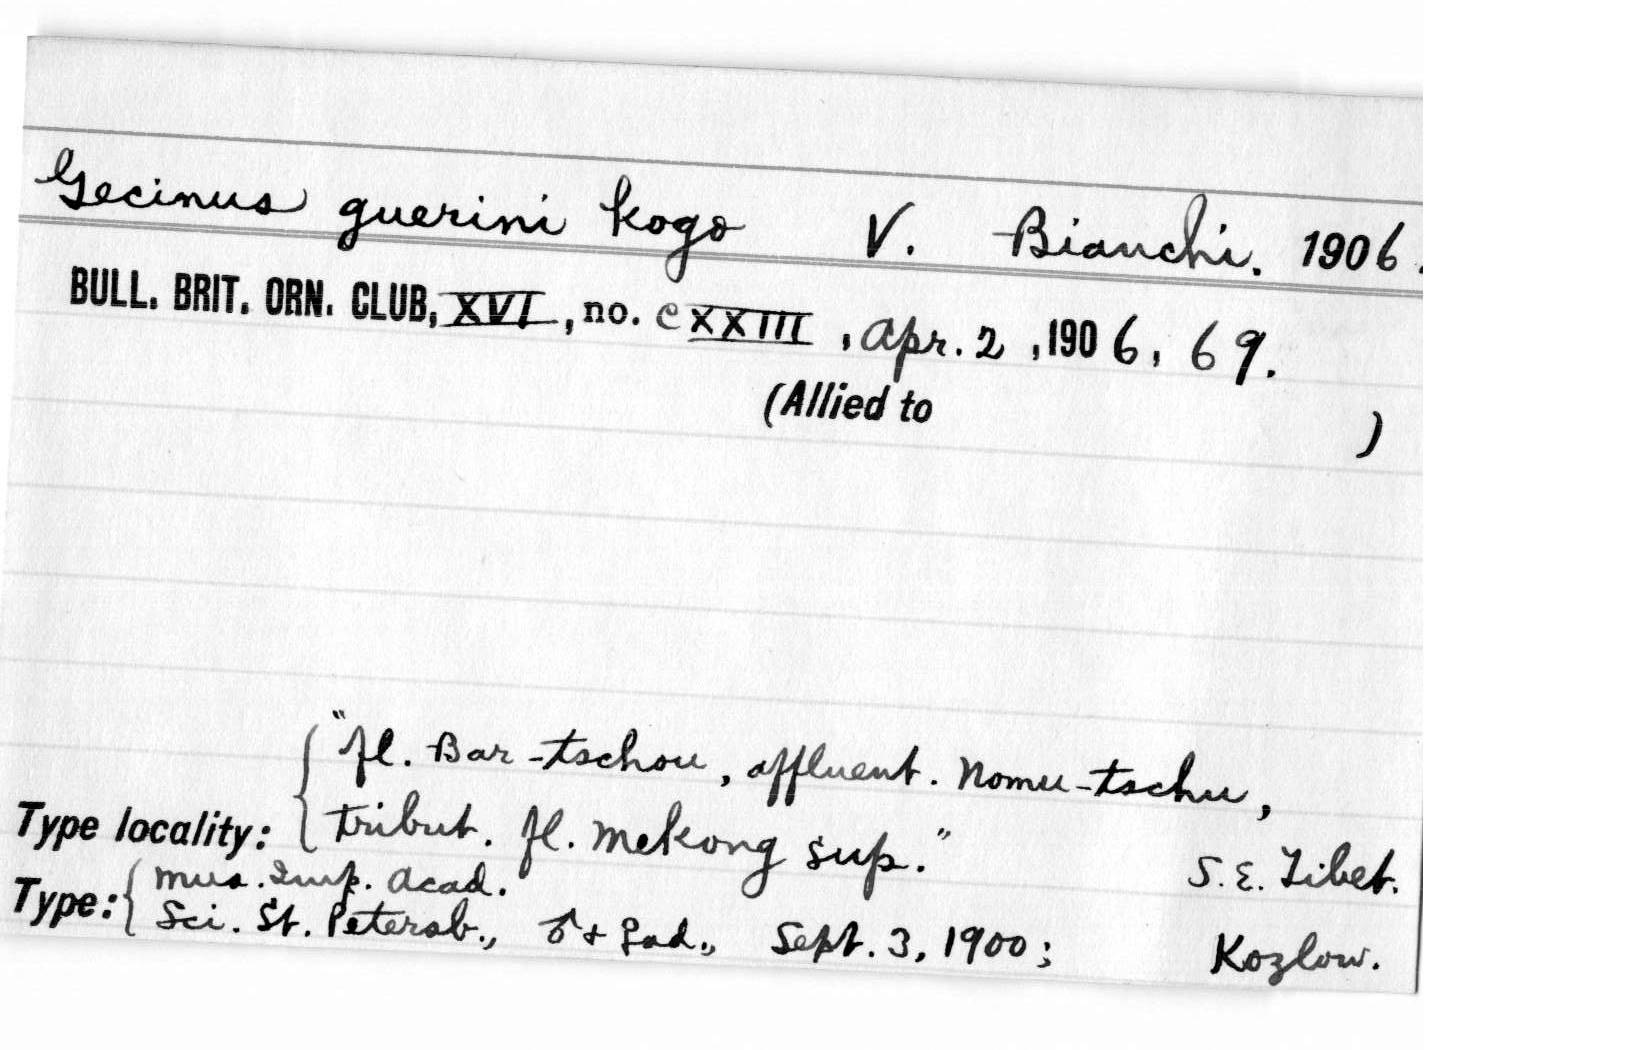 Gecinus guerini kogo V. Bianchi. 1906.
BULL. BRIT. ORN. CLUB, XVI, no. cXXIII, Apr. 2, 1906, 69.
(Allied to )
"fl. Bar-tschou, affluent. Nomu-tschu,
Type locality: { tribut. fl. Mekong sup." S.E. Tibet.
Type: { Mus. Imp. Acad.
Sci. St. Petersb., ♂ + ♀ ad., Sept. 3, 1900; Kozlow.